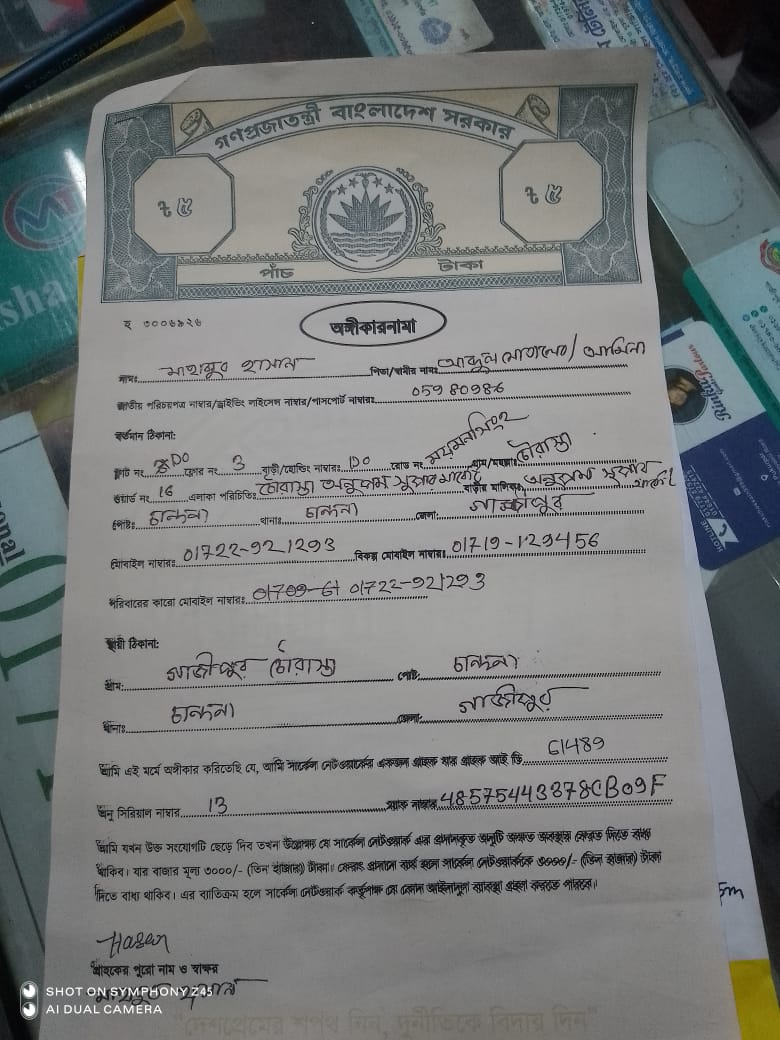 গণপ্রজাতন্ত্রী বাংলাদেশ সরকার
৳ ৫
৳ ৫
পাঁচ টাকা
অঙ্গীকারনামা
নামঃ মাহামুদ হাসান পিতা/স্বামীর নামঃ আব্দুল মোতালেব/ আমিনা
জাতীয় পরিচয়পত্র নাম্বার/ড্রাইভিং লাইসেন্স নাম্বার/পাসপোর্ট নাম্বারঃ
বর্তমান ঠিকানা:
ফ্লাট নং DO ফ্লোর নং 3 বাড়ী/হোল্ডিং নাম্বারঃ DO রোড নং ময়মনসিংহ গ্রাম/মহল্লাঃ চৌরাস্তা
ওয়ার্ড নং 16 এলাকা পরিচিতিঃ চৌরাস্তা অনুপম সুপার মার্কেট বাড়ীর মালিকঃ অনুপম সুপার মার্কেট
পোষ্টঃ চান্দনা থানাঃ চান্দনা জেলাঃ গাজীপুর
মোবাইল নাম্বারঃ 01722-921293 বিকল্প মোবাইল নাম্বারঃ 01719-129456
পরিবারের কারো মোবাইল নাম্বারঃ 01722-921293
স্থায়ী ঠিকানা:
গ্রাম: গাজীপুর চৌরাস্তা পোষ্ট: চান্দনা
থানাঃ চান্দনা জেলা: গাজীপুর
আমি এই মর্মে অঙ্গীকার করিতেছি যে, আমি সার্কেল নেটওয়ার্কের একজন গ্রাহক যার গ্রাহক আই ডি 61489
অনু সিরিয়াল নাম্বার 13 ম্যাক নাম্বার 48575443378CB09F
আমি যখন উক্ত সংযোগটি ছেড়ে দিব তখন উল্লেখ্য যে সার্কেল নেটওয়ার্ক এর প্রদানকৃত অনুটি অক্ষত অবস্থায় ফেরত দিতে বাধ্য
থাকিব। যার বাজার মূল্য ৩০০০/- (তিন হাজার) টাকা। ফেরত প্রদানে ব্যর্থ হলে সার্কেল নেটওয়ার্ককে ৩০০০/- (তিন হাজার) টাকা
দিতে বাধ্য থাকিব। এর ব্যতিক্রম হলে সার্কেল নেটওয়ার্ক কর্তৃপক্ষ যে কোন আইনানুগ ব্যবস্থা গ্রহন করতে পারবে।
Hasan
গ্রাহকের পুরো নাম ও স্বাক্ষর
মাহামুদ হাসান
"দেশপ্রেমের শপথ নিন, দুর্নীতিকে বিদায় দিন"
SHOT ON SYMPHONY Z45
AI DUAL CAMERA